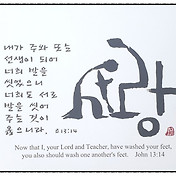 내가 주와 또는
선생이 되어
너희 발을
씻었으니
너희도 서로
발을 씻어
주는 것이
옳으니라.
요13:14
사랑
Now that I, your Lord and Teacher, have washed your feet,
you also should wash one another's feet. John 13:14